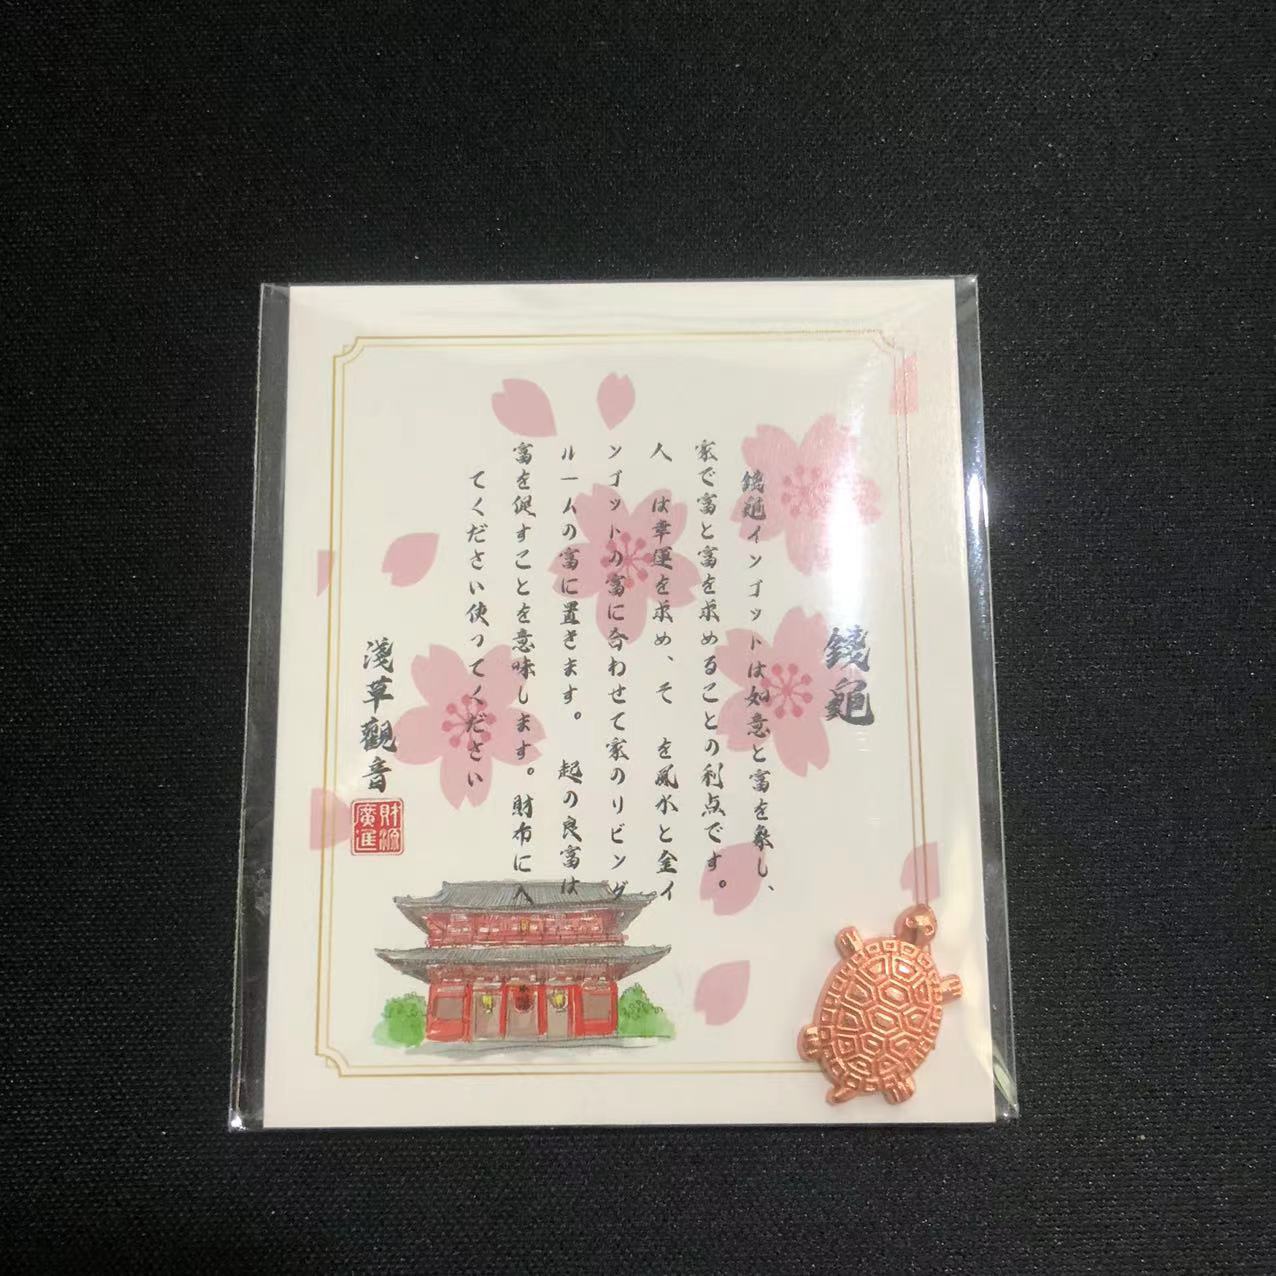 錢龜
錢龜インゴットは如意と富を象し、
家で富と富を求めることの利点です。
人 は幸運を求め、そ を風水と金イ
ンゴットの富に合わせて家のリビング
ルームの富に置きます。 起の良富は
富を促すことを意味します。財布に入
てください使ってください
淺草觀音
財源
廣進